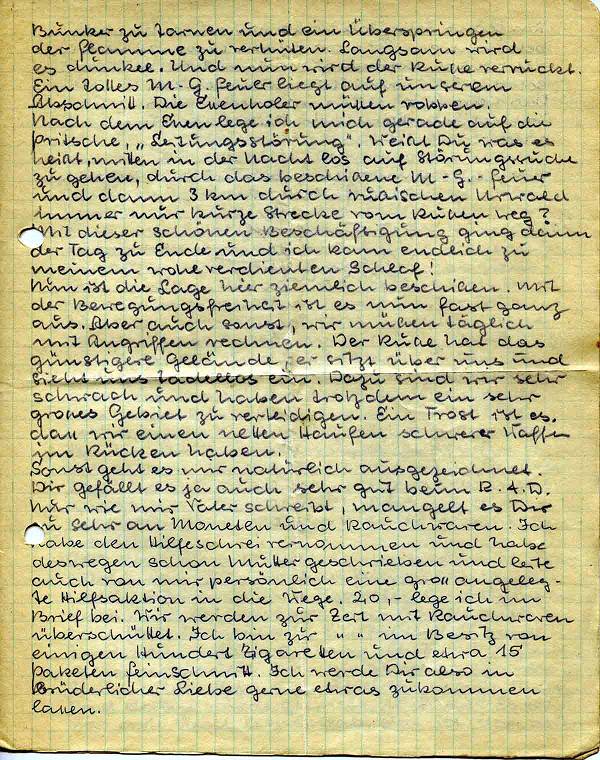 Bunker zu tarnen und ein Überspringen
der Flamme zu verhüten. Langsam wird
es dunkel. Und nun wird der Ruße verrückt.
Ein tolles M.-G. Feuer liegt auf unserem
Abschnitt. Die Essenholer müßen robben.
Nach dem Essen lege ich mich gerade auf die
Pritsche, „Leitungsstörung". Weißt Du was es
heißt, mitten in der Nacht los auf Störungssuche
zu gehen, durch das beschißene M-G.-Feuer
und dann 3 km durch rußischen Urwald
immer nur kurze Strecke vom Rußen weg?
Mit dieser schönen Beschäftigung ging dann
der Tag zu Ende und ich kann endlich zu
meinem wohlverdienten Schlaf!
Nun ist die Lage hier ziemlich beschißen. Mit
der Bewegungsfreiheit ist es nun fast ganz
aus. Aber auch sonst, wir müßen täglich
mit Angriffen rechnen. Der Ruße hat das
günstigere Gelände, er sitzt über uns und
sieht uns tadellos ein. Dazu sind wir sehr
schwach und haben trotzdem ein sehr
großes Gebiet zu verteidigen. Ein Trost ist es,
daß wir einen netten Haufen schwerer Waffen
im Rücken haben.
Sonst geht es mir natürlich ausgezeichnet.
Dir gefällt es ja auch sehr gut beim R.A.D.
Nur wie mir Vater schreibt, mangelt es Dir
zu sehr an Moneten und Rauchwaren. Ich
habe den Hilfeschrei vernommen und habe
deswegen schon Mutter geschrieben und leite
auch von mir persönlich eine groß angeleg-
te Hilfsaktion in die Wege. 20,- lege ich im
Brief bei. Wir werden zur Zeit mit Rauchwaren
überschüttet. Ich bin zur " " im Besitz von
einigen Hundert Zigaretten und etwa 15
Paketen Feinschnitt. Ich werde Dir also in
Brüderlicher Liebe gerne etwas zukommen
laßen.